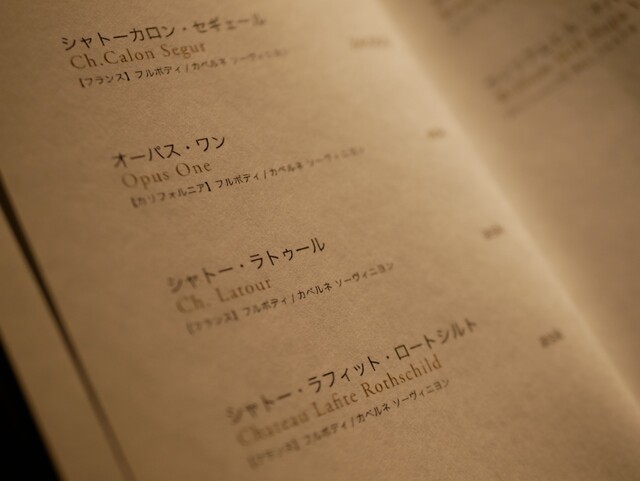 シャトーカロン・セギュール
Ch.Calon Segur
【フランス】フルボディ/カベルネ ソーヴィニヨン
オーパス・ワン
Opus One
【カリフォルニア】フルボディ/カベルネ ソーヴィニヨン
シャトー・ラトゥール
Ch. Latour
【フランス】フルボディ/カベルネ ソーヴィニヨン
シャトー・ラフィット・ロートシルト
Chateau Lafite Rothschild
【フランス】フルボディ/カベルネ ソーヴィニヨン